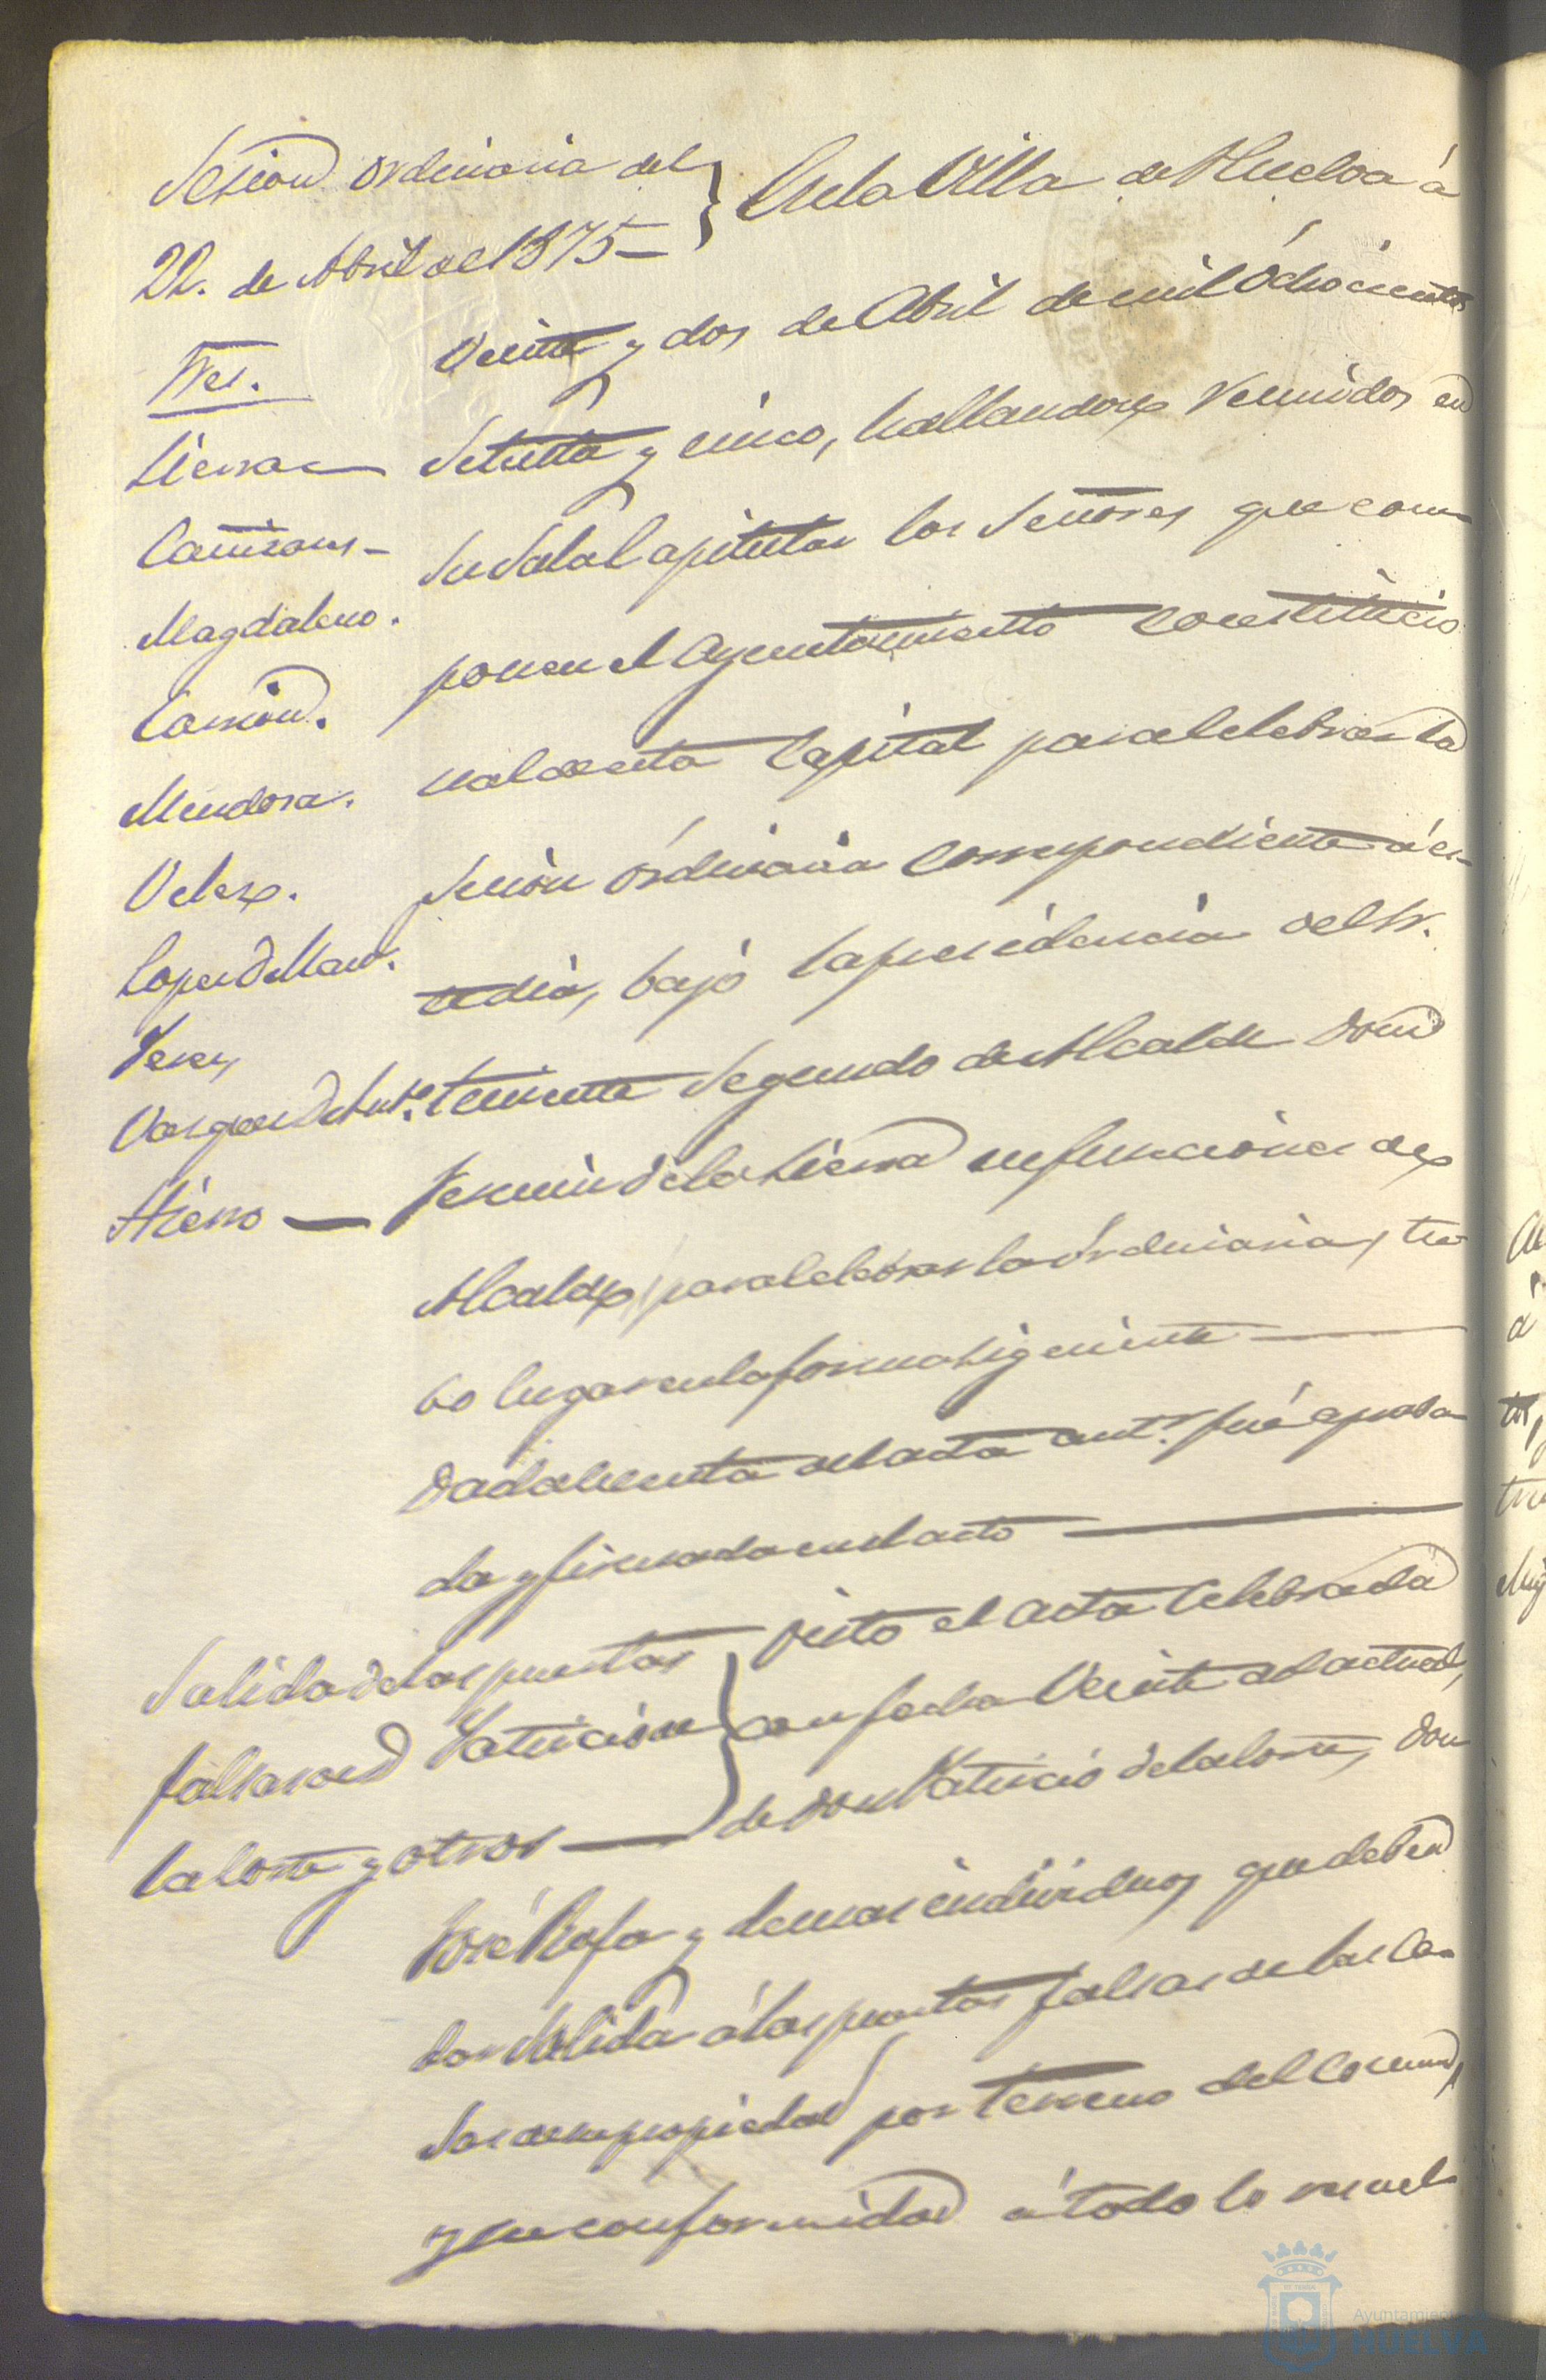 Sesion ordinaria del
22. de Abril de 1875—
Sres.
Sierra—
Cañizares—
Magdaleno.
Carrion.
Mendoza.
Velez.
Lopez D. Man.l
Perez
Vazquez D. Ant.o
Hierro—
En la Villa de Huelva á
veinte y dos de Abril de mil ochocientos
setenta y cinco, hallandose reunidos en
su Sala Capitular los Señores que com-
ponen el Ayuntamiento constitucio
nal de esta Capital para celebrar la
sesión órdinaria correspondiente á es-
te dia, bajo la presidencia del Sr.
teniente segundo de Alcalde Don
Fermin de la Sierra en funciones de
Alcalde, para celebrar la órdinaria, tu
bo lugar en la forma siguiente—
Dada cuenta del acta ant.r fué aproba-
da y firmada en el acto—
Salida de las puertas
falsas de D. Patricio de
la Corte y otros—
Visto el acta celebrada
con fecha veinte del actual,
de Don Patricio de la Corte, Don
José Rofa y demas individuos, que deben
dar salida á las puertas falsas de las ca-
sas de su propiedad por terreno del Comun,
y en conformidad á todo lo resuel-
Ayuntamiento de
HUELVA